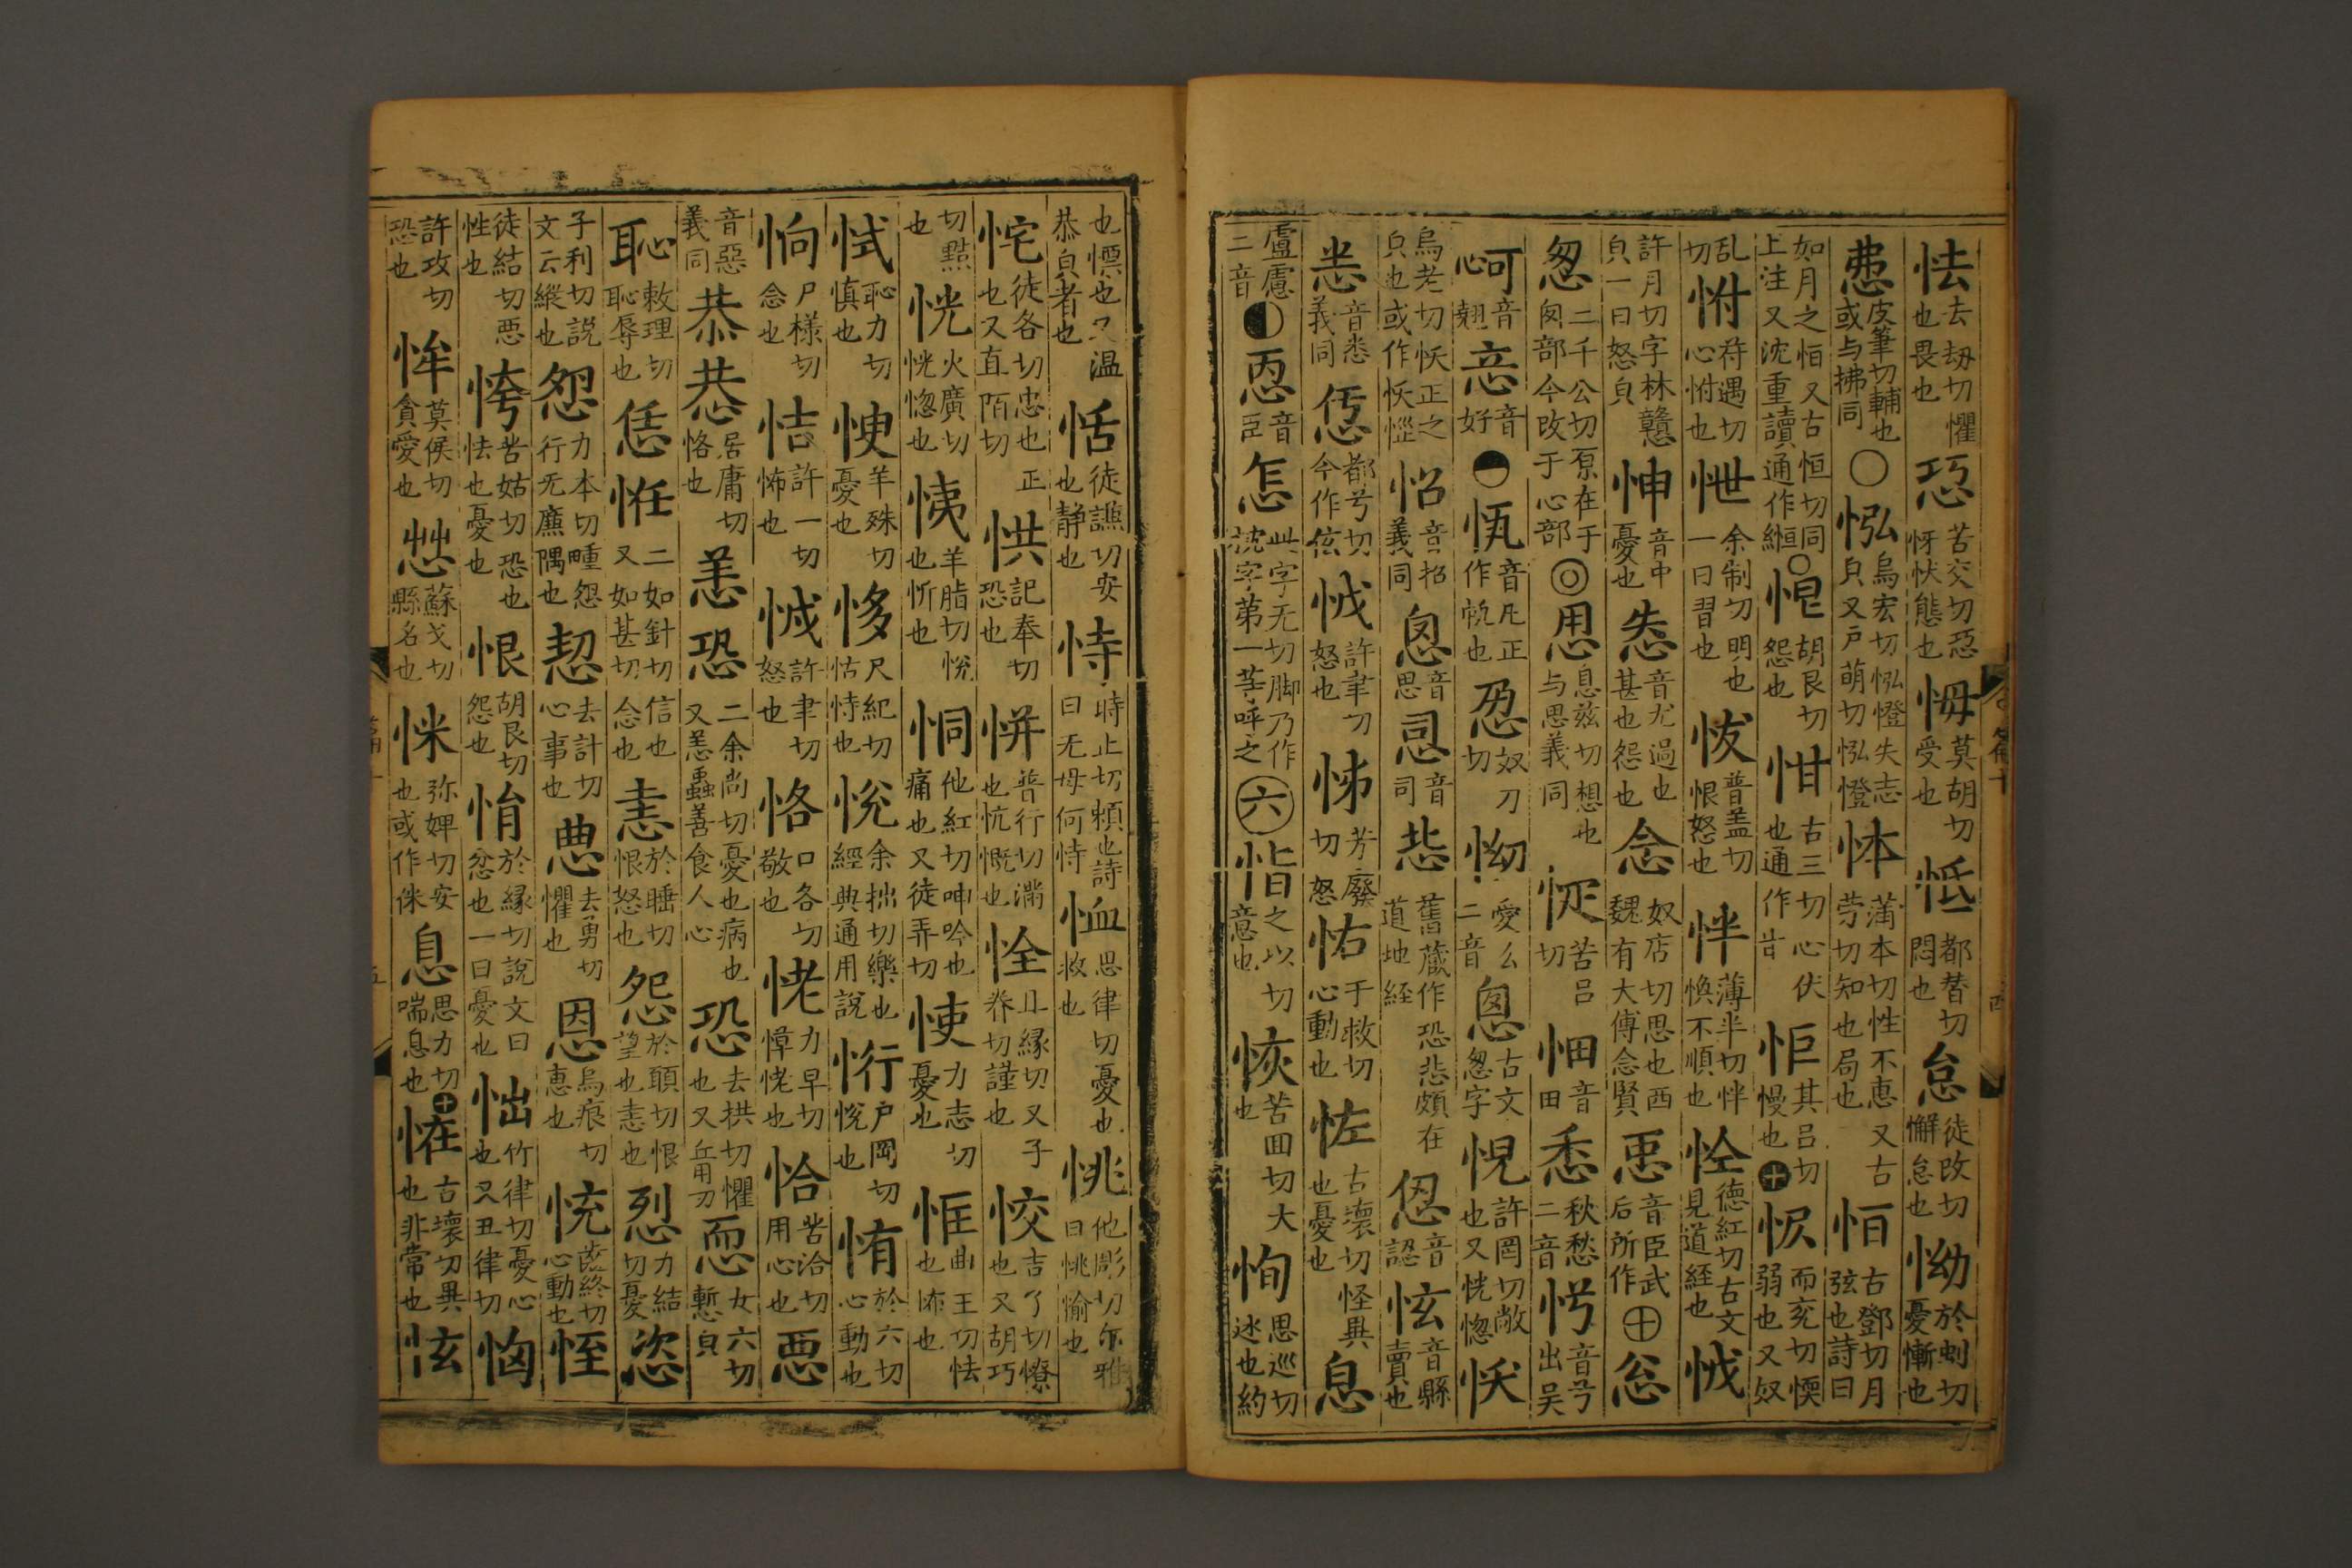 怯去刼切懼也畏也㤍苦交切惡伢忕態也㥆莫胡切受也㤅都替切悶也怠徒改切懈怠也怮於虯切憂慚也
皮筆切輔也或与拂同〇㤋烏宏切㤋憕失志皃又戸萌切㤋憕体蒲本切性不惠又古劳切知也局也恒古鄧切月弦也詩曰
如月之恒又古恒切同上注又沈重讀通作縆〇㤆胡艮切怨也㤌古三切心伏也通作甘怇其吕切慢也㤖而兖切愞弱也又奴
乱切怤苻遇切心怤也怈余制切明也一曰習也㤄普盖切恨怒也怑薄半切怑愌不順也㤏徳紅切古文見道経也怴
許月切字林戇皃一曰怒皃忡音中憂也音尤過也甚也怨也念奴店切思也西魏有大傅念賢音臣武后所作忩
怱二千公切原在于囪部今改于心部◎恖息兹切想也与思義同怶苦吕切㤁音田恘秋愁二音㤉音兮出吴
音翹音好音凡正作㤺也奴刀切怮愛么二音悤古文怱字怳許罔切敞也又恍惚㤇
烏老切㤇正之皃也或作㤇㥟怊音招義同怱音思音司舊藏作恐悲頗在道地経音認怰音縣賣也
音悉義同都兮切今作伭怴許聿切怒也怫芳廢切怒怞于救切心動也怪古壞切怪異也憂也息
盧慮二音音臣怎此字无切脚乃作枕字苐一等呼之六恉之以切意也恢苦囬切大也恂思巡切逑也約
也慓也又温恭皃者也恬徒謙切安也静也恃時止切賴也詩曰无母何恃恤思律切憂也救也恌他彫切尔雅曰恌愉也
㤞徒各切忠也又直陌切正㤨記奉切恐也恲普行切滿也忼慨也恮止縁切又子眷切謹也恔吉了切憭也又胡巧
切㸃也恍火廣切恍惚也恞羊脂切悦也忻也恫他紅切呻吟也痛也又徒弄切㤦力志切憂也恇曲王切怯也怖也
恜恥力切慎也㥚羊殊切憂也恀尺紀切怙恃也悦余拙切樂也經典通用說㤚户岡切悦也㤢於六切心動也
恦尸様切念也㤲許一切怖也怴許聿切怒也恪口各切敬也恅力早切憛恅也恰苦洽切用心也惡
音惡義同恭㳟居庸切恪也恙恐二余尚切憂也病也又恙蟲善食人心恐去拱切懼也又㐀用切恧女六切慙皃
恥敕理切恥辱也恁㤛二如針切信也又如甚切念也恚於睡切恨怒也怨於願切恨望也恚也烈力結切憂恣
子利切說文云縱也怨力本切㽵怨行无廉隅也恝去計切心事也恿去勇切懼也恩烏痕切惠也㤝蚩終切心動也恎
徒結切惡性也恗苦姑切恐也怯也憂也恨胡艮切怨也悁於縁切說文曰忿也一曰憂也㤕竹律切憂心也又丑律切恟
許攻切恐也恈莫侯切貪愛也惢蘇戈切縣名也㥝弥婢切安也或作侎息思力切喘息也恠古壞切異也非常也怰